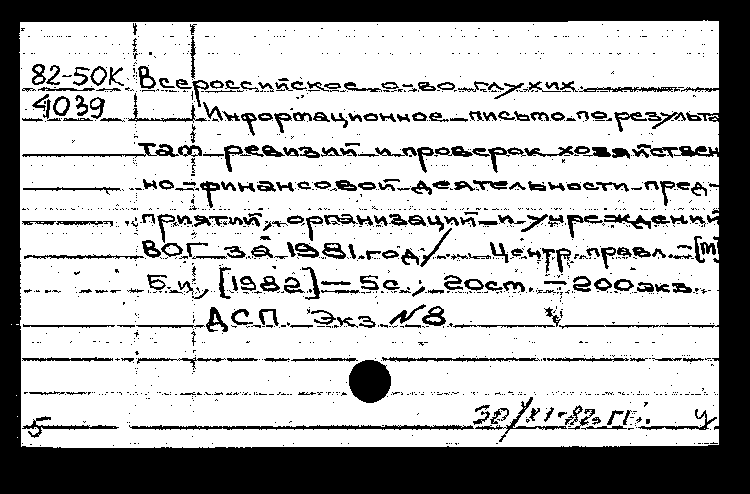 82-50К Всероссийское о-во глухих.
4039 Информационное письмо по результа
там ревизий и проверок хозяйствен
но-финансовой деятельности пред-
приятий, организаций и учреждений
ВОГ за 1981 год / Центр. правл. - [М]
Б.и., [1982] — 5с.; 20см. — 200экз.
ДСП. Экз. №8.
30/XI-82г.
5